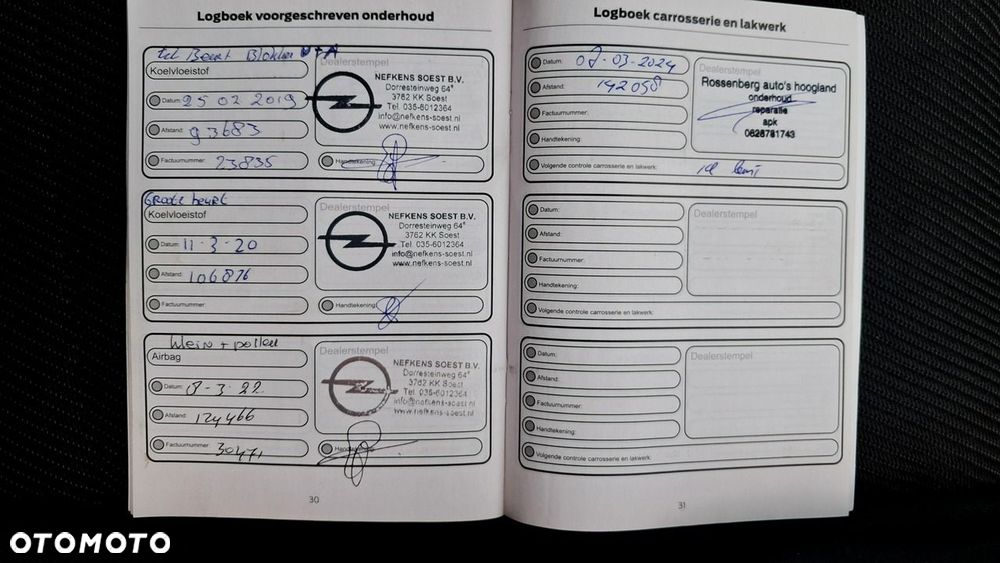 Logboek voorgeschreven onderhoud
Beurt
Koelvloeistof
Datum: 25 02 2019
Afstand: 93683
Factuurnummer: 23835
Dealerstempel
NEFKENS SOEST B.V.
Dorresteinweg 64a
3762 KK Soest
Tel. 035-6012364
info@nefkens-soest.nl
www.nefkens-soest.nl
Handtekening:
Grote beurt
Koelvloeistof
Datum: 11-3-20
Afstand: 106876
Factuurnummer:
Dealerstempel
NEFKENS SOEST B.V.
Dorresteinweg 64a
3762 KK Soest
Tel. 035-6012364
info@nefkens-soest.nl
www.nefkens-soest.nl
Handtekening:
klein + pollen
Airbag
Datum: 8-3-22
Afstand: 124466
Factuurnummer: 30471
Dealerstempel
NEFKENS SOEST B.V.
Dorresteinweg 64a
3762 KK Soest
Tel. 035-6012364
info@nefkens-soest.nl
www.nefkens-soest.nl
30
Logboek carrosserie en lakwerk
Datum: 07-03-2024
Afstand: 142058
Factuurnummer:
Handtekening:
Volgende controle carrosserie en lakwerk:
Dealerstempel
Rossenberg auto's hoogland
onderhoud
reparatie
apk
0628781743
Datum:
Afstand:
Factuurnummer:
Handtekening:
Volgende controle carrosserie en lakwerk:
Dealerstempel
Datum:
Afstand:
Factuurnummer:
Handtekening:
Volgende controle carrosserie en lakwerk:
Dealerstempel
31
OTOMOTO